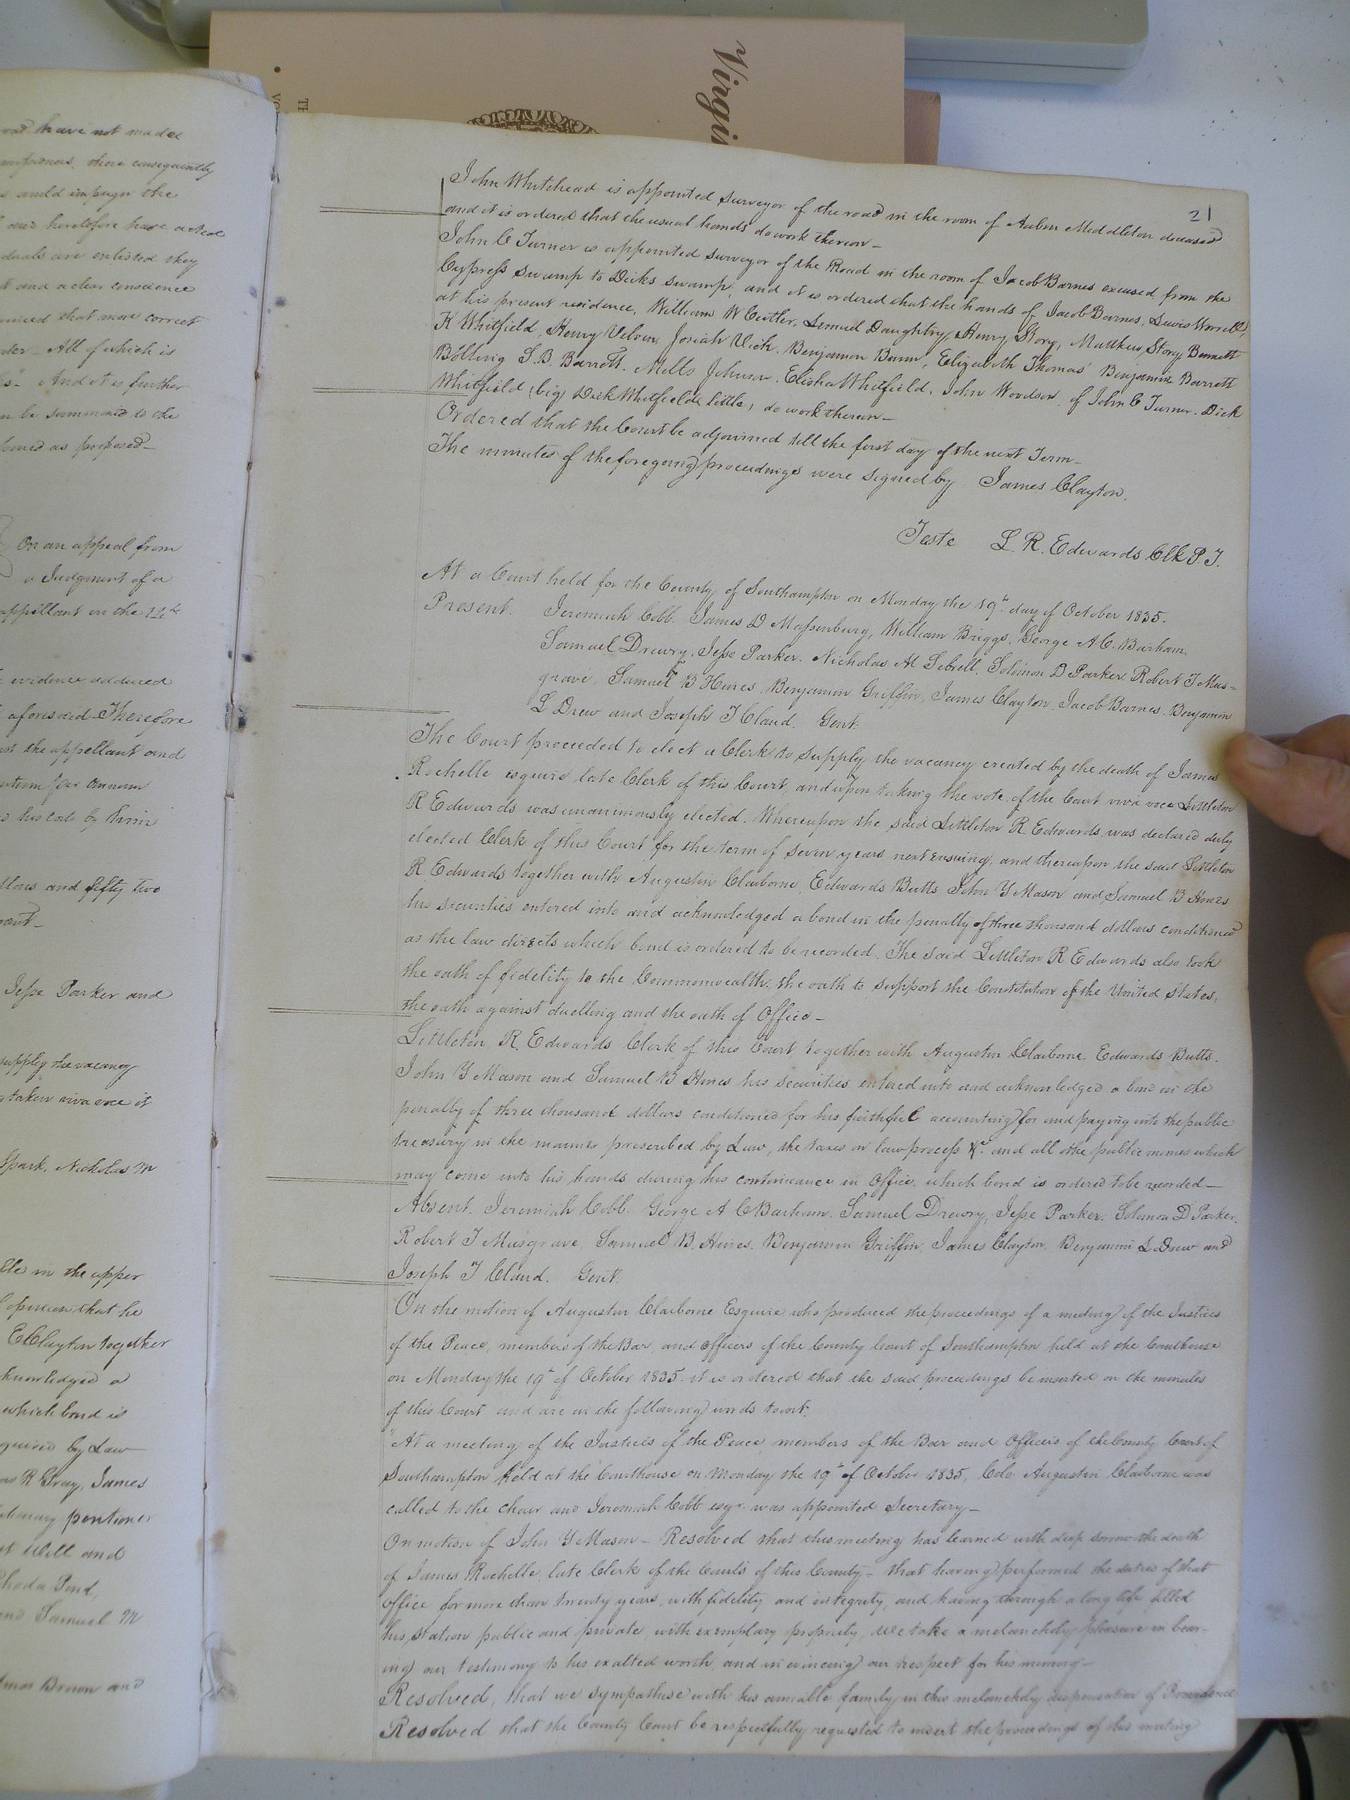 Virgi
have not made
there consequently
could impugn the
heretofore have acted
are enlisted they
and a clear conscience
that more correct
All of which is
And it is further
be summoned to the
as proposed
On an appeal from
a Judgment of a
appellant on the 12th
evidence adduced
aforesaid Therefore
the appellant and
per annum
his costs by him
and fifty two
Jesse Parker and
supply the vacancy
taken viva voce it
Spark, Nicholas M
in the upper
opinion that he
E Clayton together
acknowledged a
which bond is
required by Law
R Gray, James
Will and
Rhoda Pond,
and Samuel M
Brown and
21
John Whitehead is appointed surveyor of the road in the room of Middleton deceased
and it is ordered that the usual hands do work thereon—
John C Turner is appointed surveyor of the Road in the room of Jacob Barnes excused, from the
Cypress swamp to Dicks swamp, and it is ordered that the hands of Jacob Barnes, Lewis Worrell,
at his present residence, William W Cutler, Lemuel Daughtry, Henry Story, Matthew Story Bennett
K Whitfield, Henry Velvin, Josiah Vick, Benjamin Bunn, Elizabeth Thomas Benjamin Barrett
Bolling S. B. Barrett, Mells Johnson, Elisha Whitfield, John Woodson, of John C Turner, Dick
Whitfield (big) Dick Whitfield (little) do work thereon—
Ordered that the Court be adjourned till the first day of the next Term—
The minutes of the foregoing proceedings were signed by James Clayton.
Teste L. R. Edwards Clk P. T.
At a Court held for the County of Southampton on Monday the 19th day of October 1835.
Present. Jeremiah Cobb. James D Massenburg, William Briggs, George A. C. Barham,
Samuel Drewry, Jesse Parker, Nicholas M Sebrell, Solomon D Parker, Robert T Mus-
grave, Samuel B Hines, Benjamin Griffin, James Clayton, Jacob Barnes, Benjamin
L Drew and Joseph T Claud. Gent.
The Court proceeded to elect a Clerk to supply the vacancy created by the death of James
Rochelle esquire late Clerk of this Court, and upon taking the vote of the Court viva voce Littleton
R Edwards was unanimously elected. Whereupon the said Littleton R. Edwards was declared duly
elected Clerk of this Court for the term of seven years next ensuing, and thereupon the said Littleton
R. Edwards together with Augustin Claiborne, Edwards Butts John Y Mason and Samuel B Hines
his securities entered into and acknowledged a bond in the penalty of three thousand dollars conditioned
as the law directs which bond is ordered to be recorded. The said Littleton R Edwards also took
the oath of fidelity to the Commonwealth, the oath to support the Constitution of the United States,
the oath against duelling and the oath of Office—
Littleton R. Edwards Clerk of this Court together with Augustin Claiborne, Edwards Butts.
John Y Mason and Samuel B Hines his securities entered into and acknowledged a bond in the
penalty of three thousand dollars conditioned for his faithful accounting for and paying into the public
treasury in the manner prescribed by Law, the taxes on law process &c and all other public monies which
may come into his hands during his continuance in Office, which bond is ordered to be recorded—
Absent. Jeremiah Cobb. George A C Barham. Samuel Drewry, Jesse Parker. Solomon D Parker,
Robert T Musgrave, Samuel B. Hines. Benjamin Griffin, James Clayton, Benjamin L Drew and
Joseph T Claud. Gent.
On the motion of Augustin Claiborne Esquire who produced the proceedings of a meeting of the Justices
of the Peace, members of the Bar, and officers of the County Court of Southampton held at the Courthouse
on Monday the 19th of October 1835. it is ordered that the said proceedings be inserted on the minutes
of this Court and are in the following words towit:
"At a meeting of the Justices of the Peace, members of the Bar and Officers of the County Court of
Southampton held at the Courthouse on Monday the 19th of October 1835, Colo Augustin Claiborne was
called to the chair and Jeremiah Cobb esqr. was appointed Secretary—
On motion of John Y Mason — Resolved that this meeting has learned with deep sorrow the death
of James Rochelle, late Clerk of the Courts of this County — that having performed the duties of that
office for more than twenty years, with fidelity and integrity, and having through a long life filled
his station public and private, with exemplary propriety, we take a melancholy pleasure in bear-
ing our testimony to his exalted worth, and in evincing our respect for his memory—
Resolved, that we sympathise with his amiable family in this melancholy dispensation of Providence
Resolved that the County Court be respectfully requested to insert the proceedings of this meeting